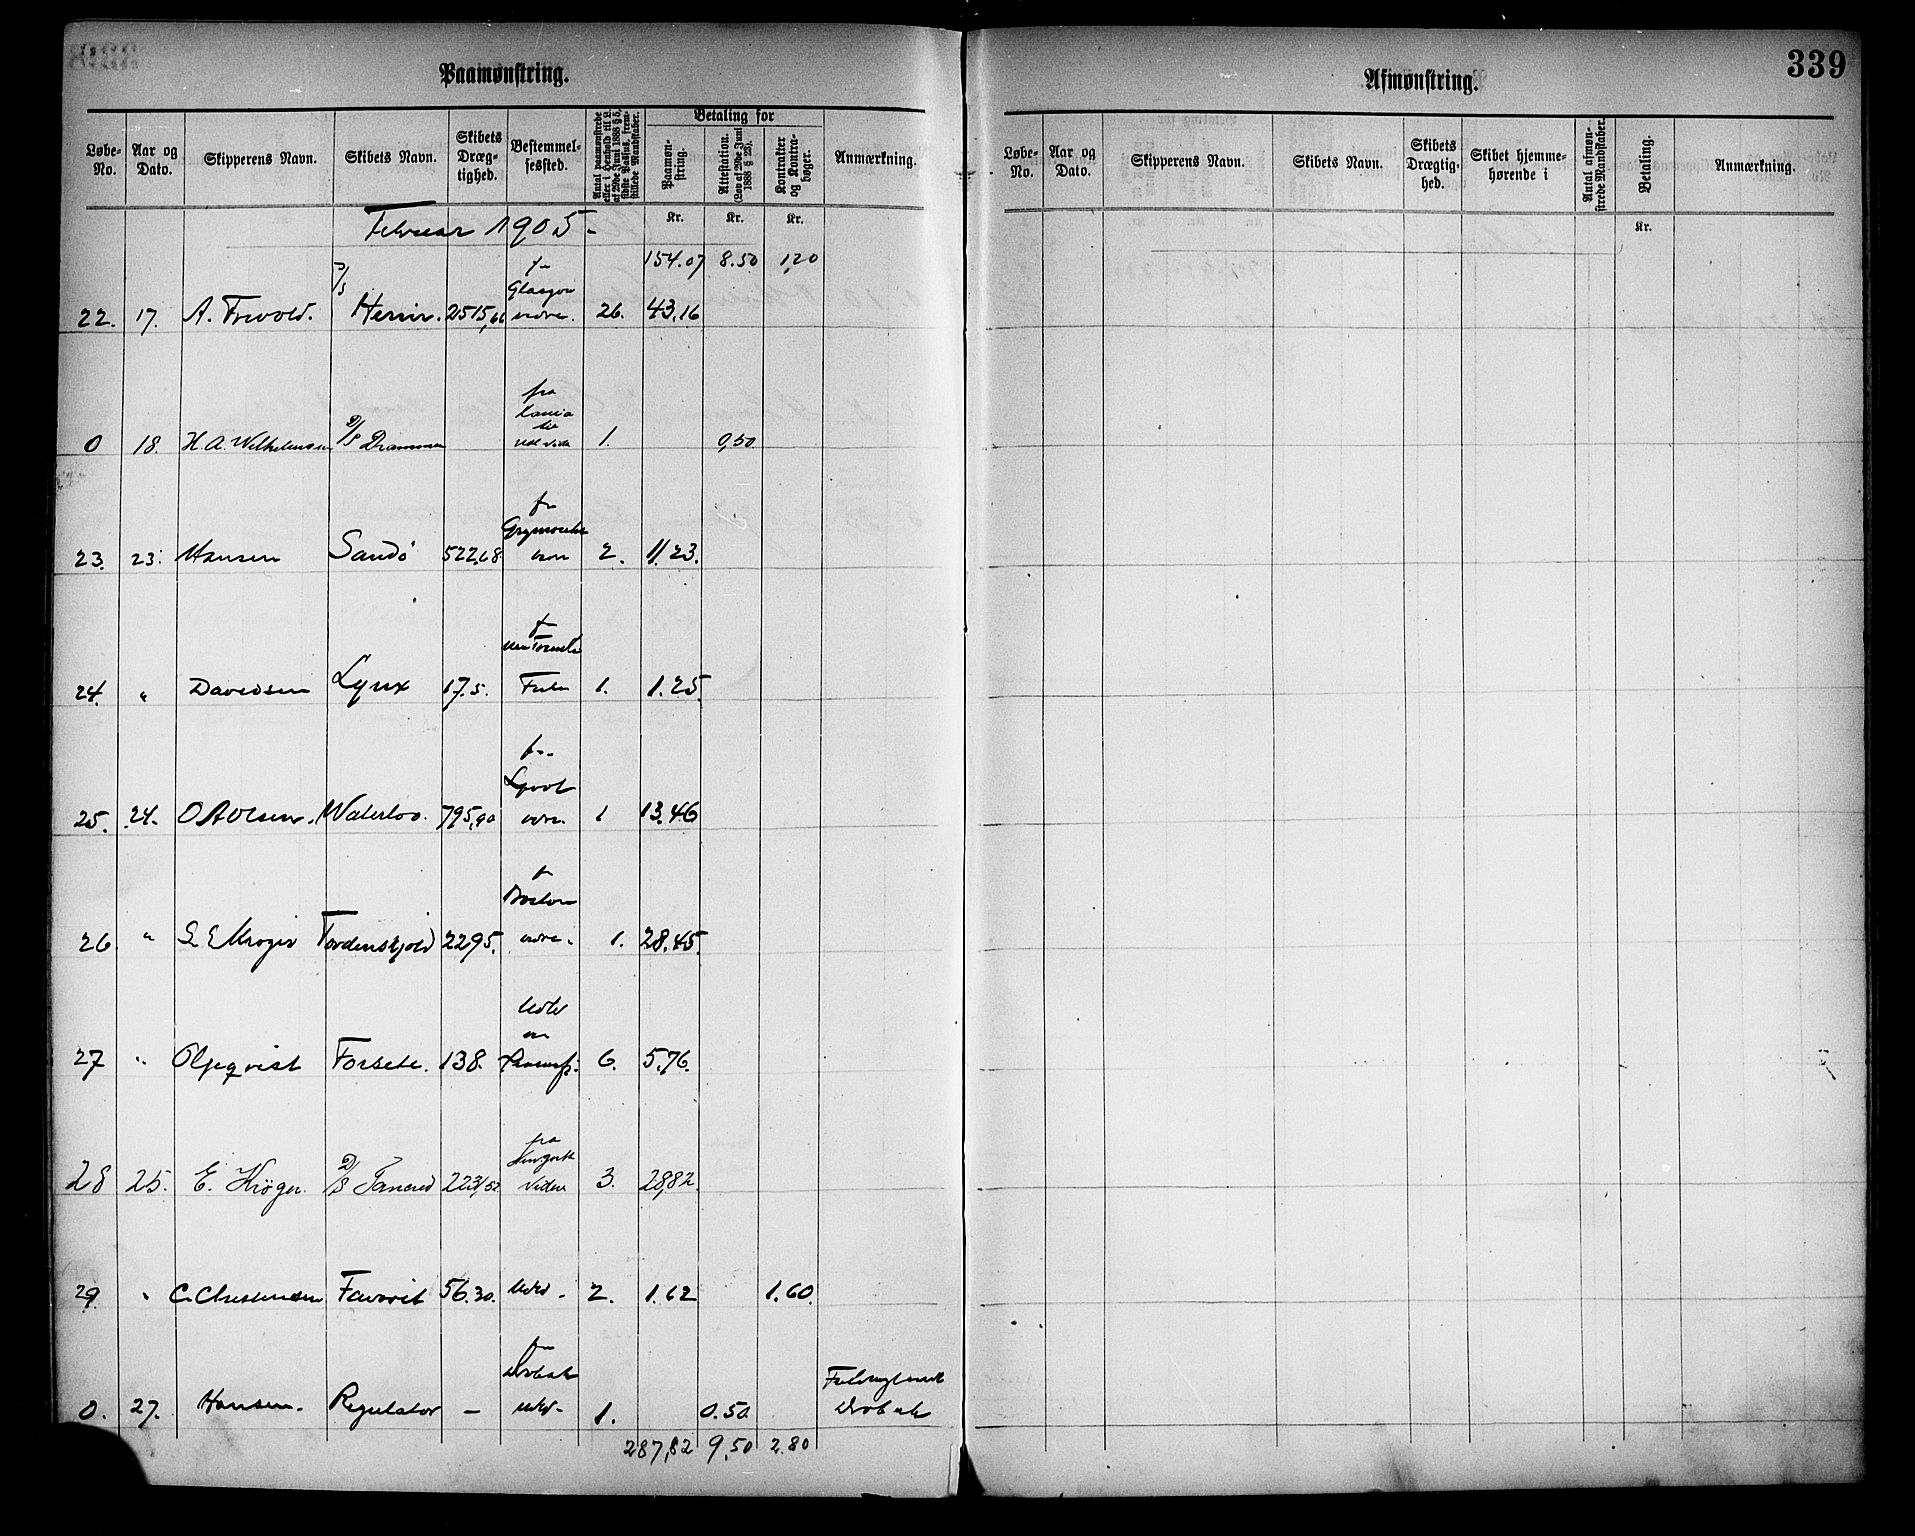 339
Paamønstring.
Løbe-No.
Aar og Dato.
Skipperens Navn.
Skibets Navn.
Skibets Dræg-tighed.
Bestemmel-sessted.
Antal paamønstrede eller i Henhold til L. af 29de Juni 1888 § 5, sidste Passus, frem-stillede Mandskaber.
Betaling for
Paamøn-string.
Attestation. (Lov af 29de Juni 1888 § 23).
Kontrakter og Kontra-bøger.
Anmærkning.
Februar 1905-
Kr. Kr. Kr.
154.07 8.50 1,20
22. 17. A. Trevold. D/S 2515,66 Glasgow 26. 43.16
fra
0 18. H. A. Wilhelmsen D/S Drammen 1. 0,50
23. 23. Hansen Sandö 522,68 2. 11,23.
24. " Davidsen Lynx 17.5. 1. 1.25.
25. 24. O A Olsen. Waterloo. 795,90 1 13.46
Boston
26. " Tordenskjold 2295. 1. 28.45.
27 " Forsete. 138. 6. 5.76.
fra
28 25. E. Kröger. D/S Tancred videre 3. 28,82.
29. " C. Christensen Favorit 56.30. 2. 1.62 1.60.
0. 27. Hansen. Regulator - Drøbak 1. 0.50
Drøbak
287,82 9,50 2.80
Afmønstring.
Løbe-No.
Aar og Dato.
Skipperens Navn.
Skibets Navn.
Skibets Drægtig-hed.
Skibet hjemme-hørende i
Antal afmøn-strede Mandskaber.
Betaling.
Anmærkning.
Kr.